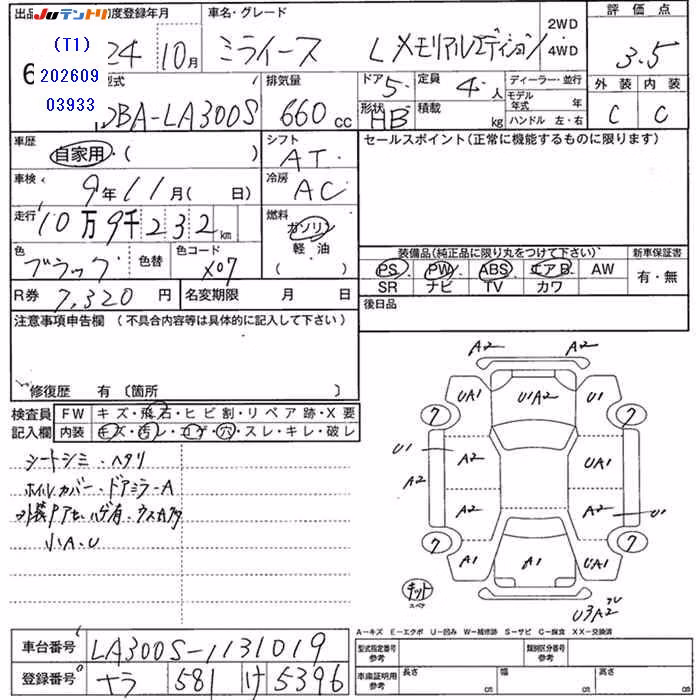 出品 JUテントリ 初度登録年月 車名・グレード 2WD 評価点
(T1) 24 10月 ミライース Lメモリアルエディション 4WD 3.5
6 202609 型式 排気量 ドア 5 定員 4人 ディーラー・並行 外装 内装
03933 DBA-LA300S 660cc 形状 HB 積載 kg モデル年式 年 ハンドル 左・右 C C
車歴 自家用・( ) シフト AT セールスポイント(正常に機能するものに限ります)
車検 9年11月( 日) 冷房 AC
走行 10万9千232km 燃料 ガソリン 軽・油 ( )
色 ブラック 色替 色コード X07
装備品(純正品に限り丸をつけて下さい) 新車保証書
PS PW ABS エアB AW 有・無
SR ナビ TV カワ
R券 7,320円 名変期限 月 日 後日品
注意事項申告欄 (不具合内容等は具体的に記入して下さい)
修復歴 有 〔箇所 〕
検査員 FW キズ・飛石・ヒビ割・リペア跡・X要
記入欄 内装 キズ・汚レ・コゲ・穴・スレ・キレ・破レ
シートシミ・ヘタリ
ホイルカバー・ドアミラーA
小A.U
A2 A2
UA1 U1A2 U1
7 7
U1 A2 UA1
A2
A2 A2 U1
7 7
A1 A1 UA1
キット
スペア
U3A2
A-キズ E-エクボ U-凹み W-補修跡 S-サビ C-腐食 XX-交換済
車台番号 LA300S-1131019 型式指定番号 参考 類別区分番号 参考
登録番号 ナラ 581 け 5396 車庫証明用 参考 長さ cm 幅 cm 高さ cm